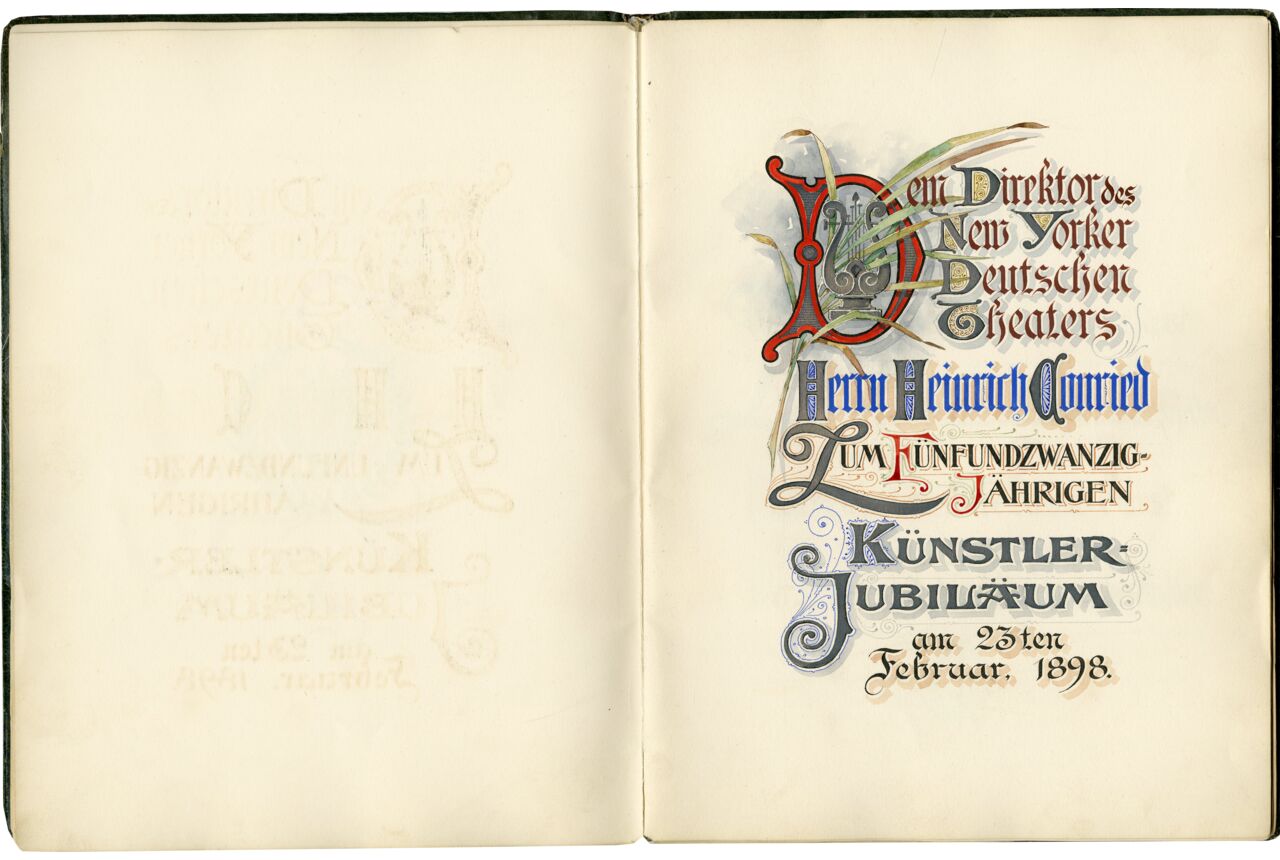 Dem Direktor des
New Yorker
Deutschen
Theaters
Herrn Heinrich Conried
Zum Fünfundzwanzig-
Jährigen
Künstler-
Jubiläum
am 23ten
Februar, 1898.